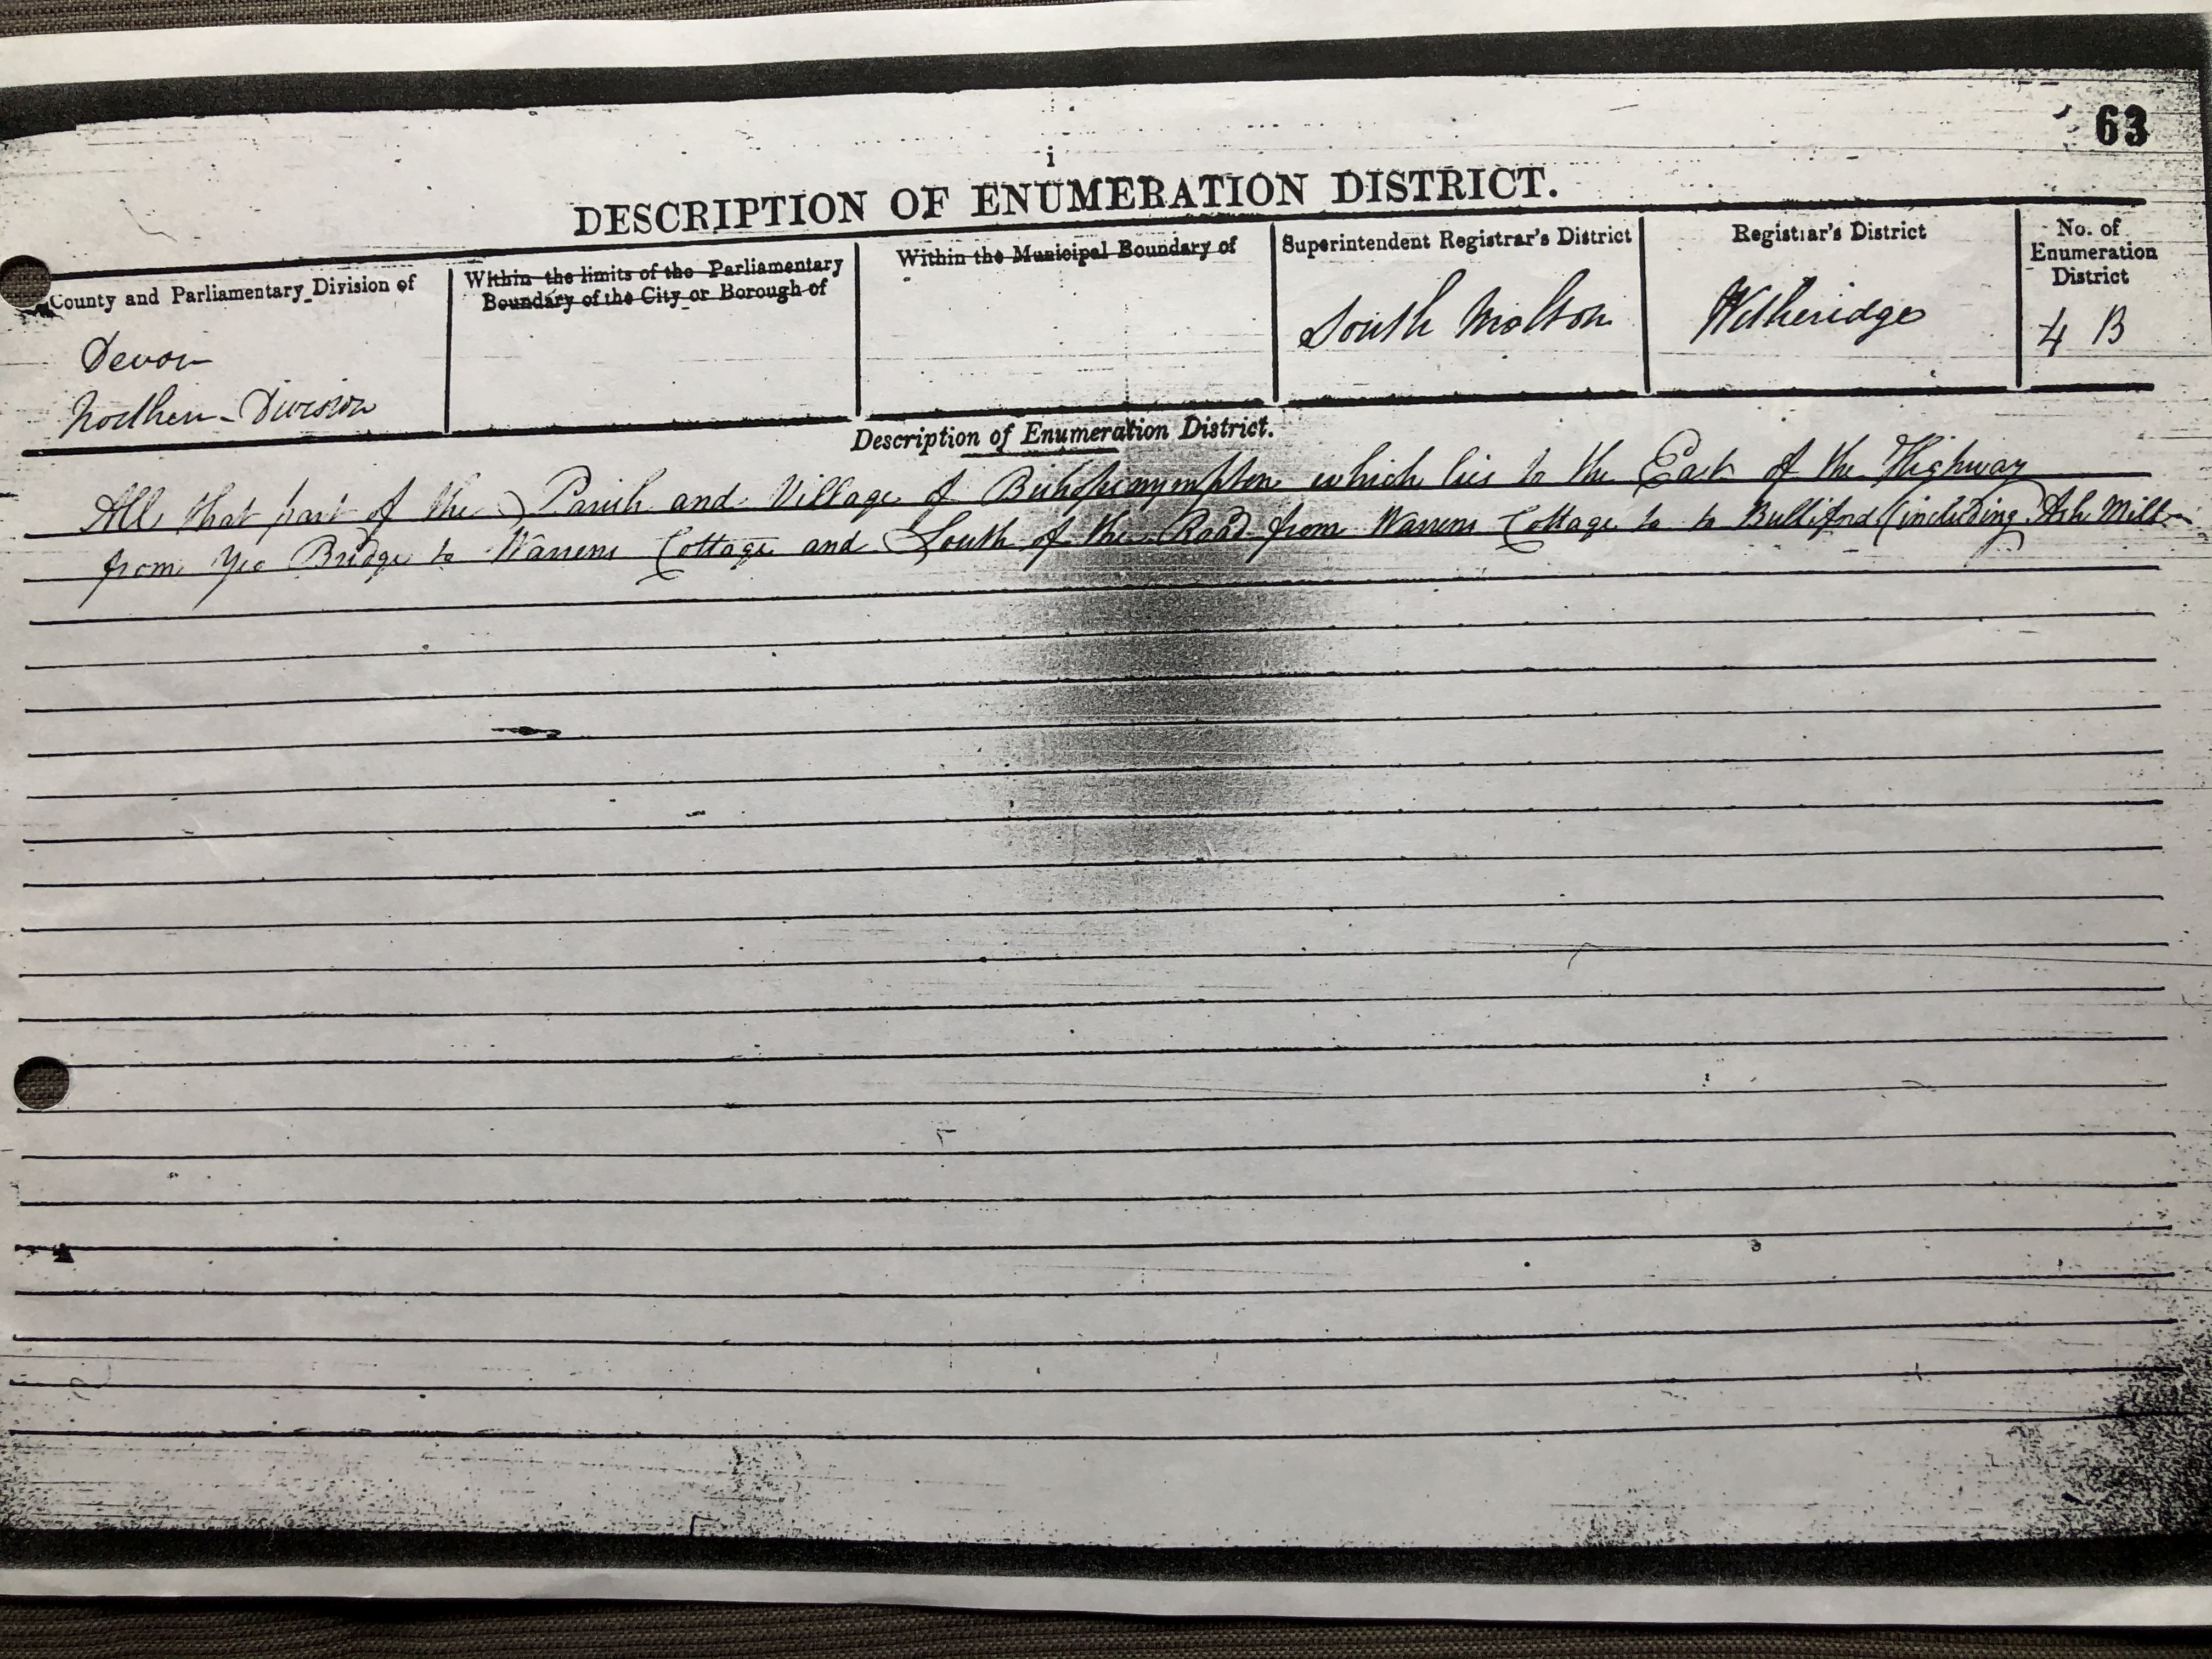 63
i
DESCRIPTION OF ENUMERATION DISTRICT.
County and Parliamentary Division of
Devon
Northern Division
Within the limits of the Parliamentary
Boundary of the City or Borough of
Within the Municipal Boundary of
Superintendent Registrar's District
South Molton
Registrar's District
Witheridge
No. of
Enumeration
District
4 B
Description of Enumeration District.
All that part of the Parish and Village of Bishopsnympton which lies to the East of the Highway
from Yeo Bridge to Warrens Cottage and South of the Road from Warrens Cottage to to Bulliford (including Ash Mill